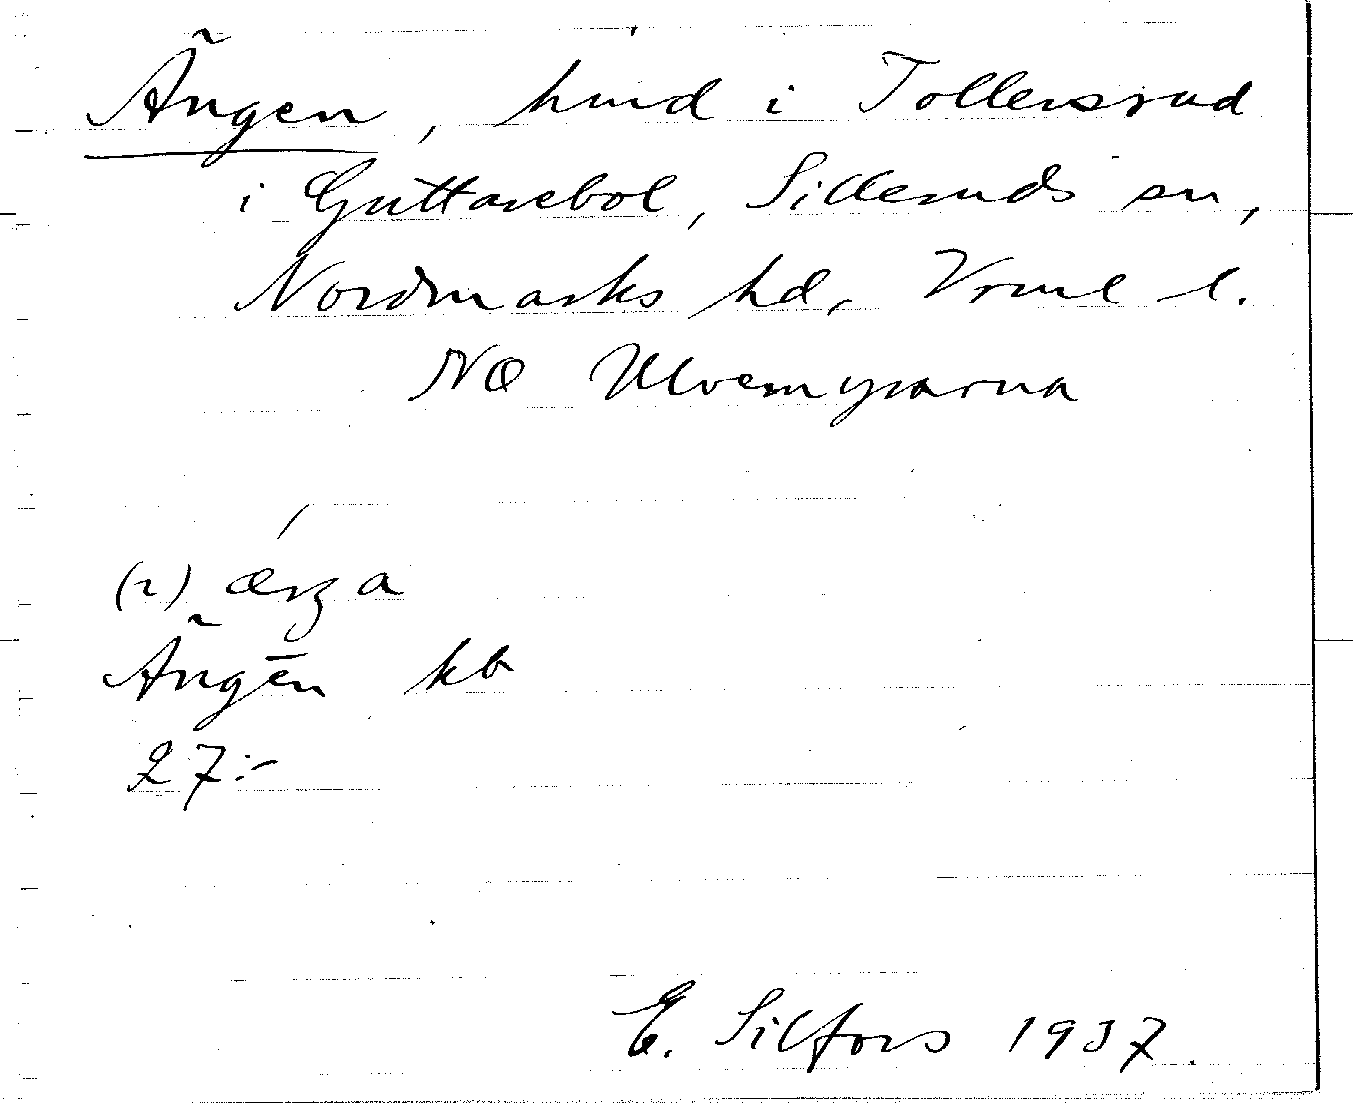 Ängen, hmd i Tollersrud
i Guttarebol, Silleruds sn,
Nordmarks hd, Vrml l.
NO Ulvemyrarna
(2) æŋa
Ängen kb
27:-
E. Silfors 1937.